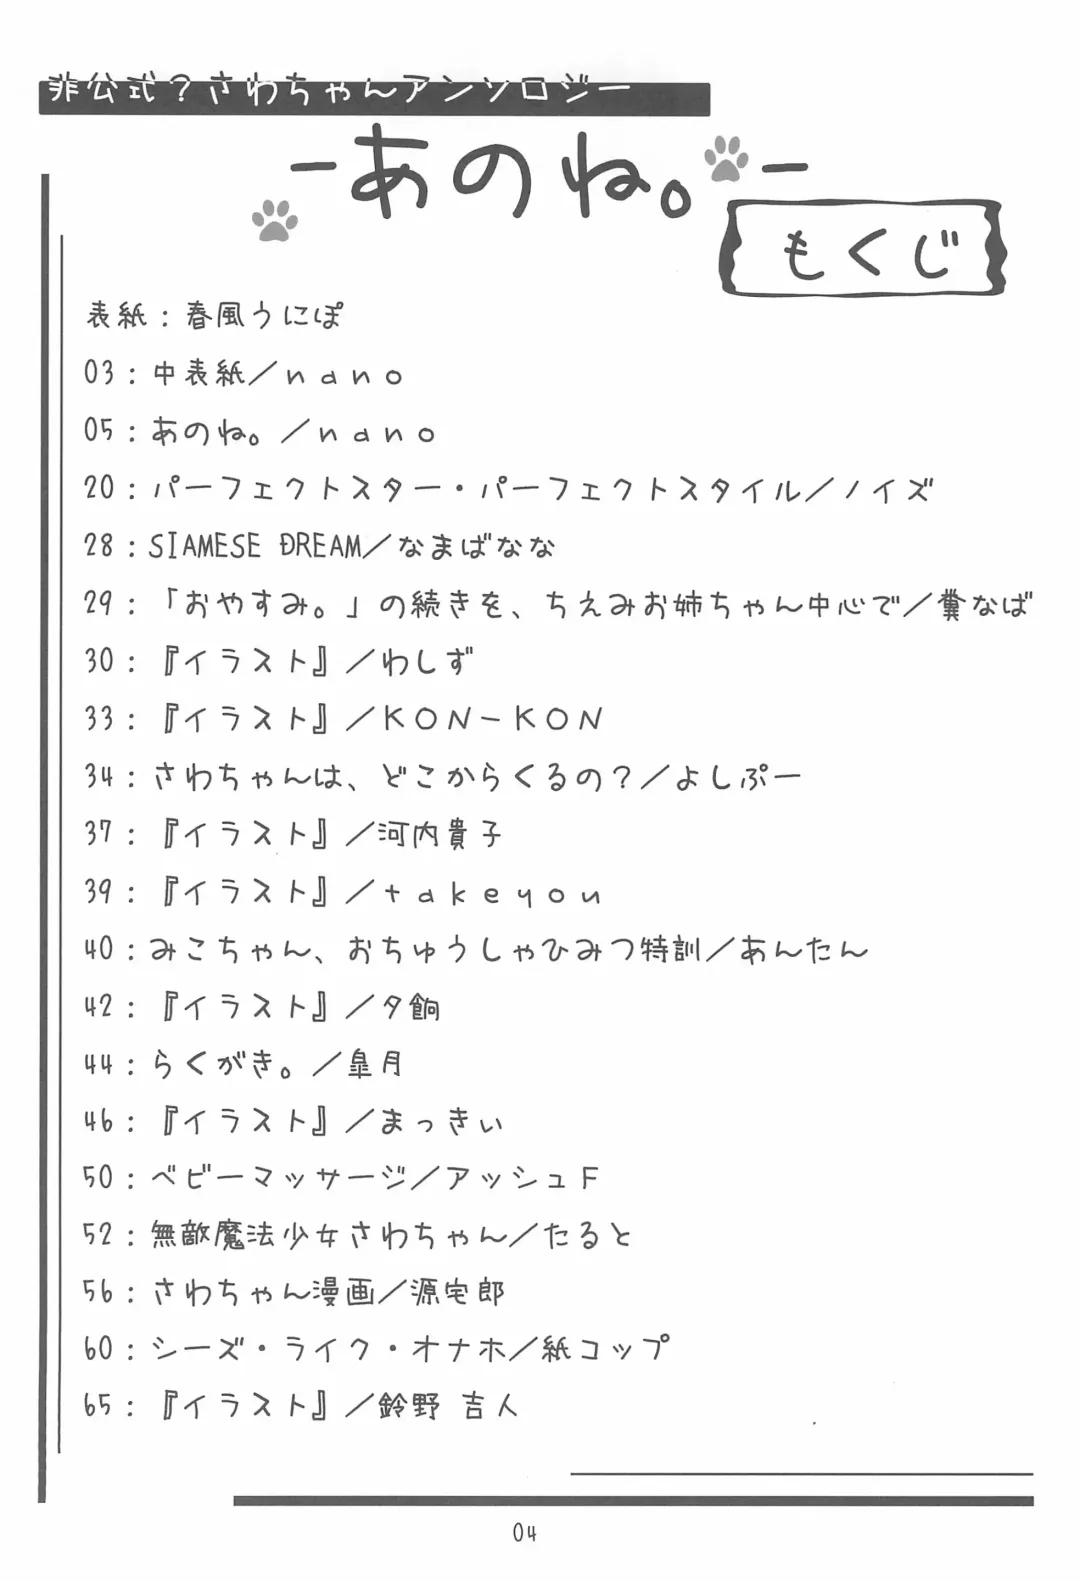 非公式?さわちゃんアンソロジー
-あのね。-
もくじ
表紙:春風うにぽ
03:中表紙/nano
05:あのね。/nano
20:パーフェクトスター・パーフェクトスタイル/ノイズ
28:SIAMESE DREAM/なまばなな
29:「おやすみ。」の続きを、ちえみお姉ちゃん中心で/糞なば
30:『イラスト』/わしず
33:『イラスト』/KON-KON
34:さわちゃんは、どこからくるの?/よしぷー
37:『イラスト』/河内貴子
39:『イラスト』/takeyou
40:みこちゃん、おちゅうしゃひみつ特訓/あんたん
42:『イラスト』/夕餉
44:らくがき。/皐月
46:『イラスト』/まっきぃ
50:ベビーマッサージ/アッシュF
52:無敵魔法少女さわちゃん/たると
56:さわちゃん漫画/源宅郎
60:シーズ・ライク・オナホ/紙コップ
65:『イラスト』/鈴野 吉人
04